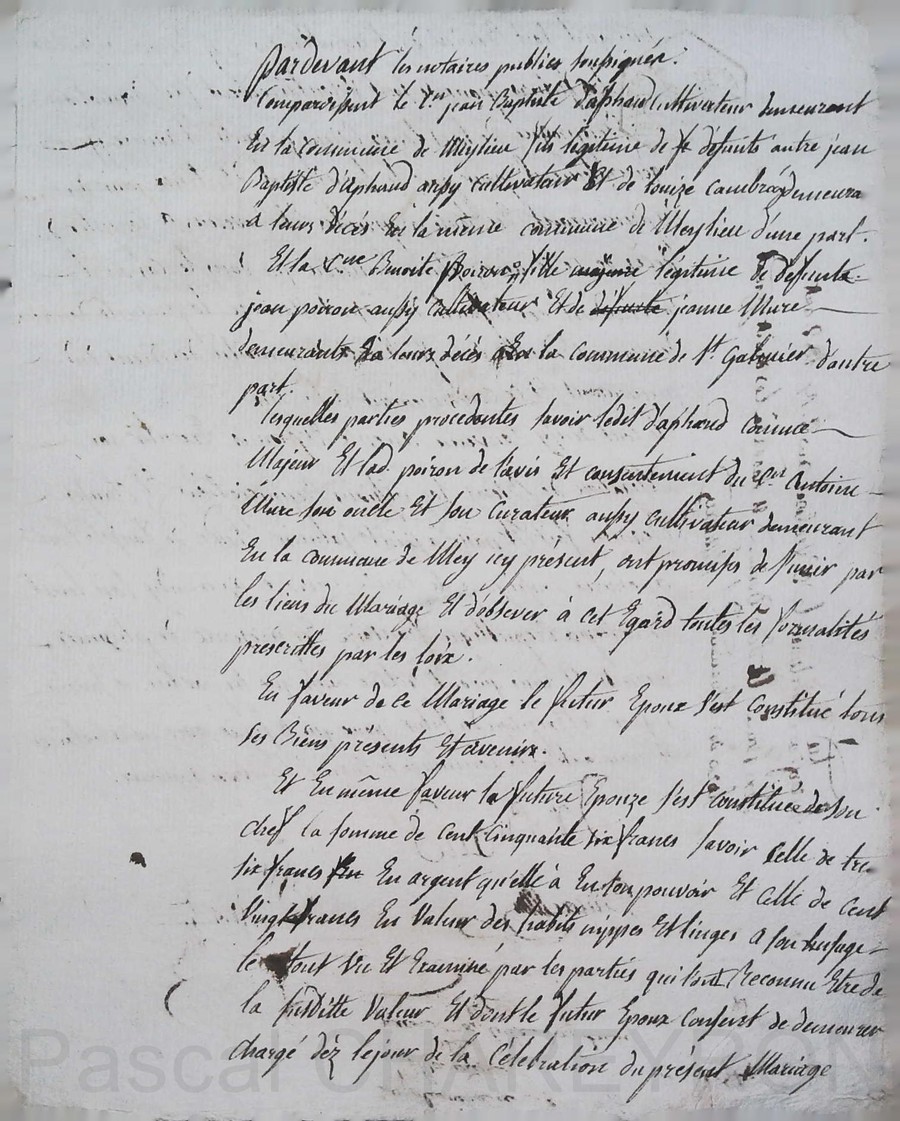 pardevant les notaires publics soussignés.
Comparoissent le Cen jean Baptiste d'aphaud cultivateur demeurant
En la commune de Meylieu fils légitime de défunts autre jean
Baptiste d'Aphaud aussy cultivateur Et de louize cambray demeura
a leurs décés En la même commune de Meylieu d'une part.
Et la Cne Benoite poiron fille majeure légitime de défunts
jean poiron aussy cultivateur Et de défunte jeanne Mure
demeurants a leurs decés En la commune de St Galmier d'autre
part.
lesquelles parties procédantes savoir ledit d'aphaud comme
Majeur Et lad. poiron de l'avis Et consentement du Cen Antoine
Mure son oncle Et son Curateur aussy cultivateur demeurant
En la commune de Mey icy présent, ont promis de s'unir par
les liens du Mariage Et d'observer à cet Egard toutes les formalités
préscrittes par les loix.
En faveur de ce Mariage le futur Epoux s'est constitué tous
ses Biens présents Et avenir.
Et En même faveur la future Epouze s'est constituée de son
chef la somme de cent cinquante six francs savoir Celle de tre
six francs En argent qu'elle à En son pouvoir Et Celle de Cent
Vingt francs En Valeur des habits nippes Et linges a son usage
le tout Vu Et Examiné par les parties qui l'ont Reconnu Etre de
la susditte Valeur Et dont le futur Epoux consent de demeurer
chargé déz le jour de la Célébration du présent Mariage
Pascal